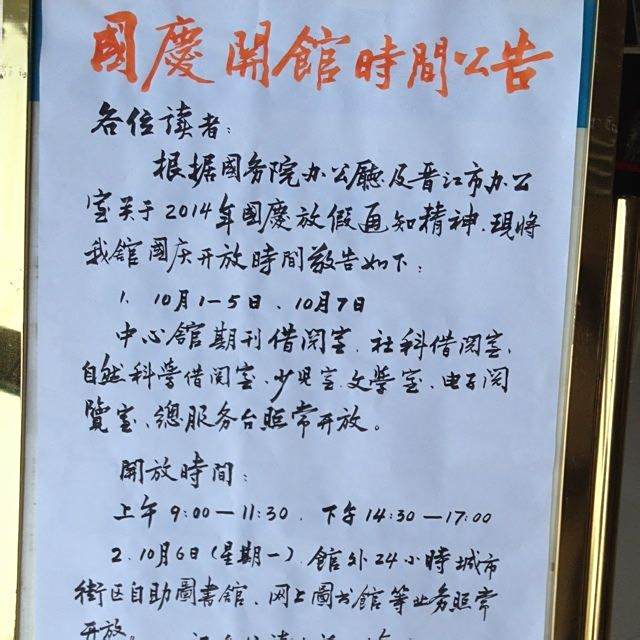 國慶開館時間公告
各位读者：
根据国务院办公廳及晋江市办公
室关于2014年國慶放假通知精神．現將
我館國庆开放時間敬告如下：
1. 10月1—5日、10月7日
中心館期刊借阅室、社科借阅室、
自然科學借阅室、少児室、文學室、电子阅
覽室、總服务台照常开放。
開放時間：
上午9:00—11:30．下午14:30—17:00
2.10月6日(星期一)．館外24小時城市
街区自助圖書館、网上圖书館等业务照常
开放。